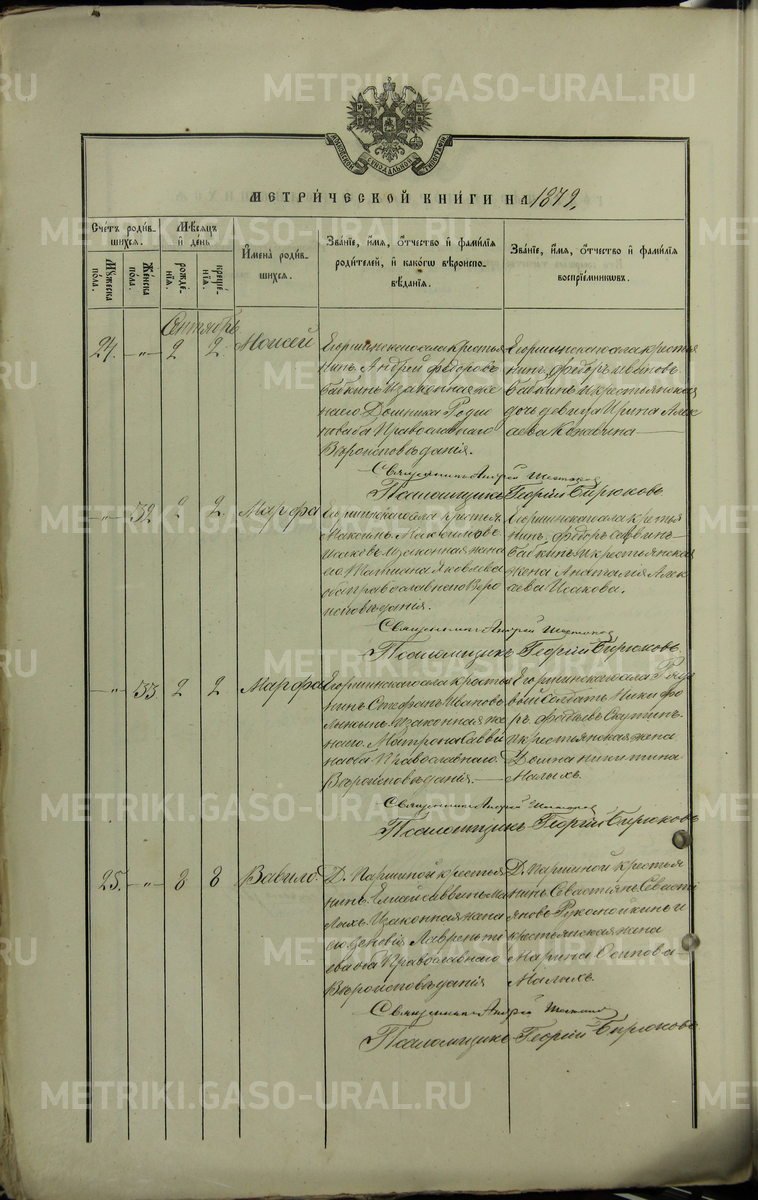 METRIKI.GASO-URAL.RU
МОСКОВСКОЙ СѴНОДАЛЬНОЙ ТИПОГРАФІИ
МЕТРИ́ЧЕСКОЙ КНИ́ГИ НА 1879,
Сче́тъ роди́в-
шихся.
Му́жеска по́ла.
Же́нска по́ла.
Мѣ́сяцъ
и҆ де́нь
рожде́нїѧ.
креще́нїѧ.
И҆мена̀ роди́в-
шихся.
Зва́нїе, и҆́мѧ, ѻ҆́тчество и҆ фами́лїѧ
роди́телей, и҆ како́гѡ вѣроиспо-
вѣ́данїѧ.
Зва́нїе, и҆́мѧ, ѻ҆́тчество и҆ фами́лїѧ
воспрїе́мникѡвъ.
Сентябрь
24. -"- 2 2. Моисей
Егоршинскаго села крестья
нинъ Андрей Федоровъ
Бабкинъ и законная же
на его Домника Родіо
нова оба Православнаго
Вѣроисповѣданія.
Егоршинскаго села крестья
нинъ Федоръ
Бабкинъ и крестьянская
дочь девица Ирина Алек
сѣева
Священникъ Андрей
Псаломщикъ Георгій Бирюковъ
-"- 32 2 2. Марфа
Егоршинскаго села крестья
Максимъ Максимовъ
Исаковъ и законная жена
его Татіана Яковлева
оба православнаго Вѣро
исповѣданія.
Егоршинскаго села крестья
нинъ Федоръ Саввинъ
Бабкинъ и крестьянская
жена Анаталія Алек
сѣева Исакова.
Священникъ Андрей
Псаломщикъ Георгій Бирюковъ.
-"- 33 2 2 Марфа
Егоршинскаго села крестья
нинъ Стефанъ Ивановъ
и законная же
на его Матрона Савви
на оба Православнаго
Вѣроисповѣданія.
Егоршинскаго села
солдатъ Никифо
ръ Скутинъ
и крестьянская жена
Домна Никитина
Малыхъ.
Священникъ Андрей
Псаломщикъ Георгій Бирюковъ
25. -"- 8 8 Вавило.
Д. Паршиной крестья
нинъ Елисей Саввинъ Ма
лыхъ и законная жена
его Лавренті
ева оба Православнаго
Вѣроисповѣданія
Д. Паршиной крестья
нинъ Севастіянъ Севасті
яновъ Рукомойкинъ и
крестьянская жена
Марина Осипова
Малыхъ.
Священникъ Андрей
Псаломщикъ Георгій Бирюковъ